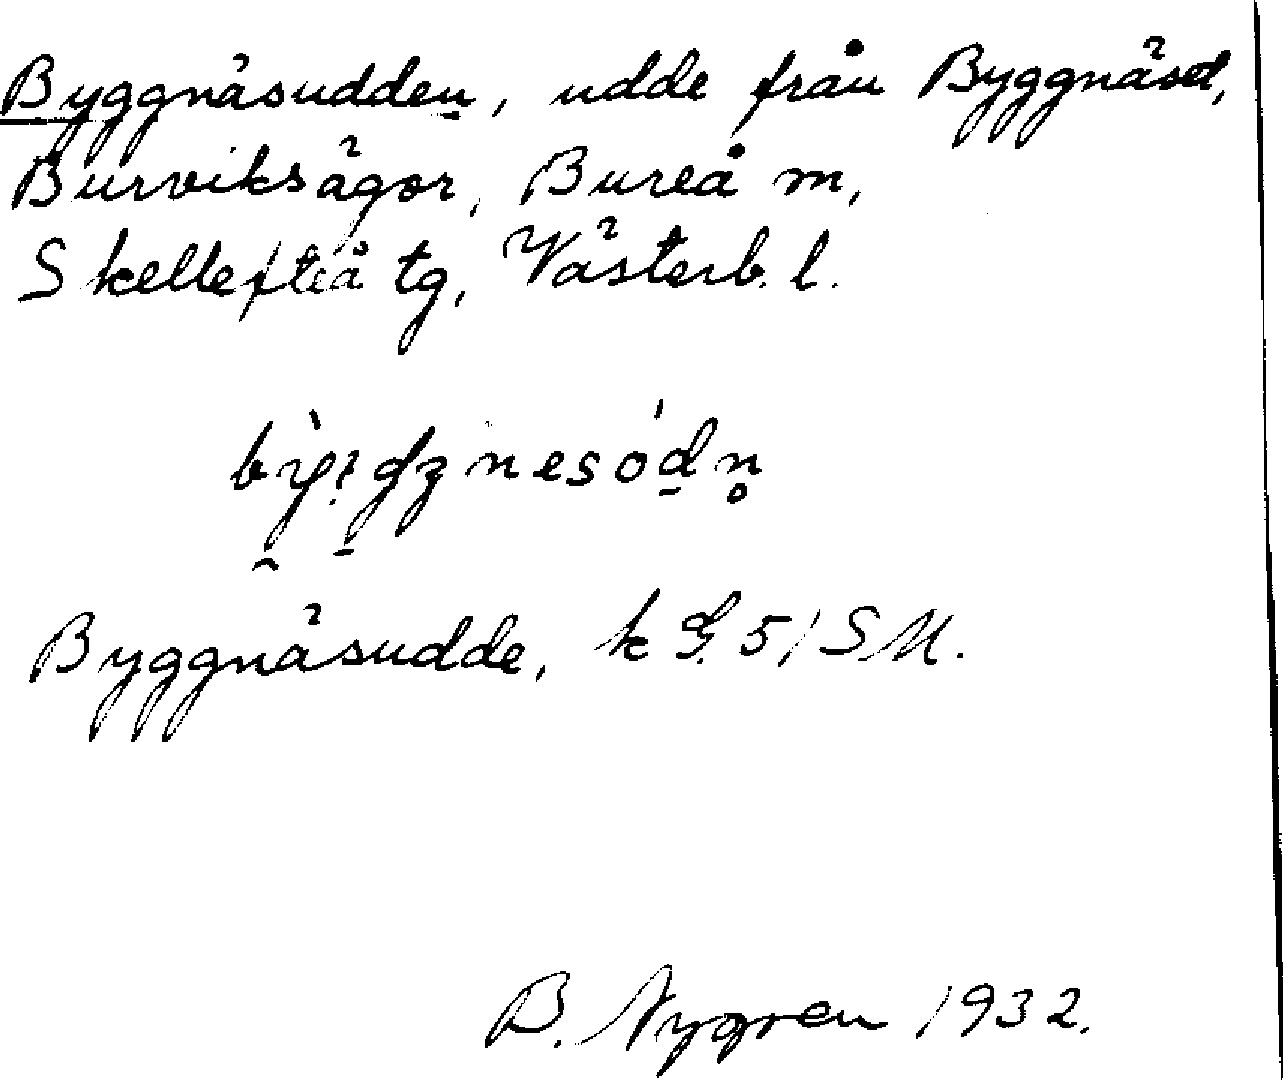 Byggnäsudden, udde från Byggnäset,
Burviksägor, Bureå m,
Skellefteå tg, Västerb. l.
Byggnäsudde, k G. 51 SM.
B. Nygren 1932.